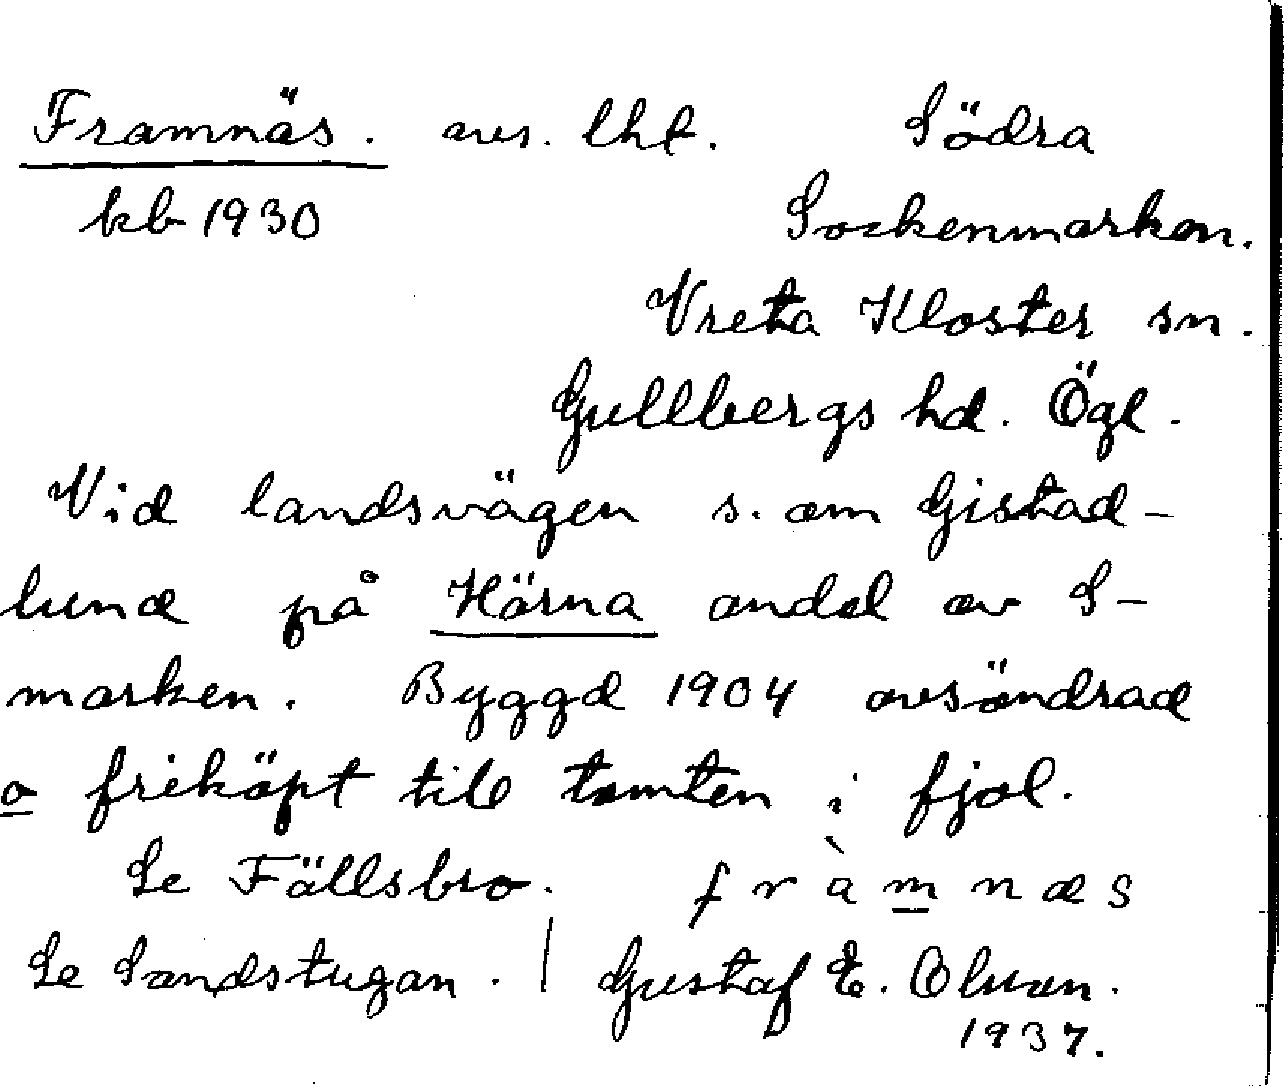 Framnäs. avs. lht. Södra
kb 1930 Sockenmarken.
Vreta Kloster sn.
Gullbergs hd. Ögl.
Vid landsvägen s. om Gistad-
lund på Härna andel av S-
marken. Byggd 1904 avsöndrad
o friköpt till tomten i fjol.
Se Fällsbro. fràmnæs
Se Sandstugan. | Gustaf E. Olsson.
1937.